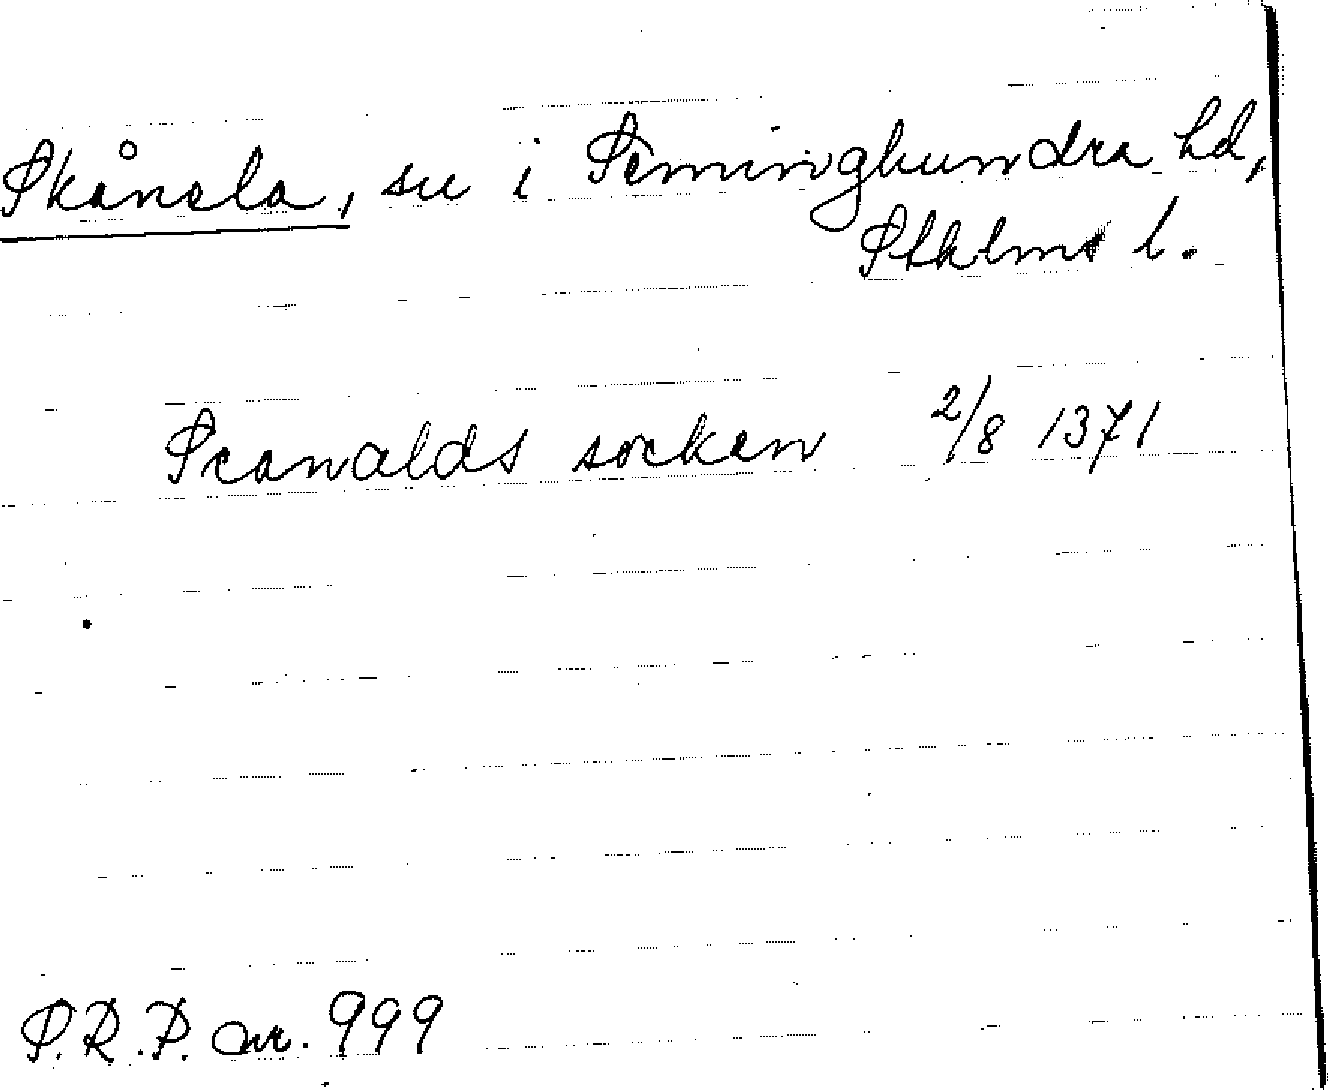 Skånela, sn i Seminghundra hd,
Sthlms l.
Scanalds socken 2/8 1371
S.R.P. nr. 999